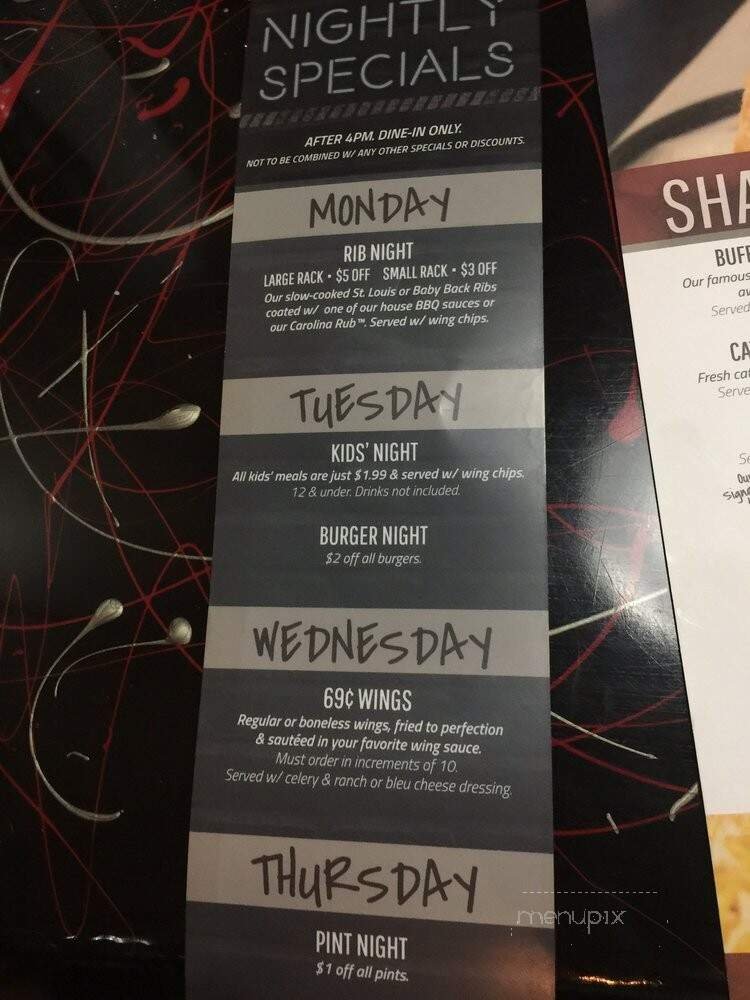 NIGHTLY
SPECIALS
AFTER 4PM. DINE-IN ONLY.
NOT TO BE COMBINED W/ ANY OTHER SPECIALS OR DISCOUNTS.
MONDAY
RIB NIGHT
LARGE RACK • $5 OFF SMALL RACK • $3 OFF
Our slow-cooked St. Louis or Baby Back Ribs
coated w/ one of our house BBQ sauces or
our Carolina Rub™. Served w/ wing chips.
TUESDAY
KIDS' NIGHT
All kids' meals are just $1.99 & served w/ wing chips.
12 & under. Drinks not included.
BURGER NIGHT
$2 off all burgers.
WEDNESDAY
69¢ WINGS
Regular or boneless wings, fried to perfection
& sautéed in your favorite wing sauce.
Must order in increments of 10.
Served w/ celery & ranch or bleu cheese dressing.
THURSDAY
PINT NIGHT
$1 off all pints.
SHA
BUFF
Our famous
Served
CA
Fresh cat
Serve
menupix